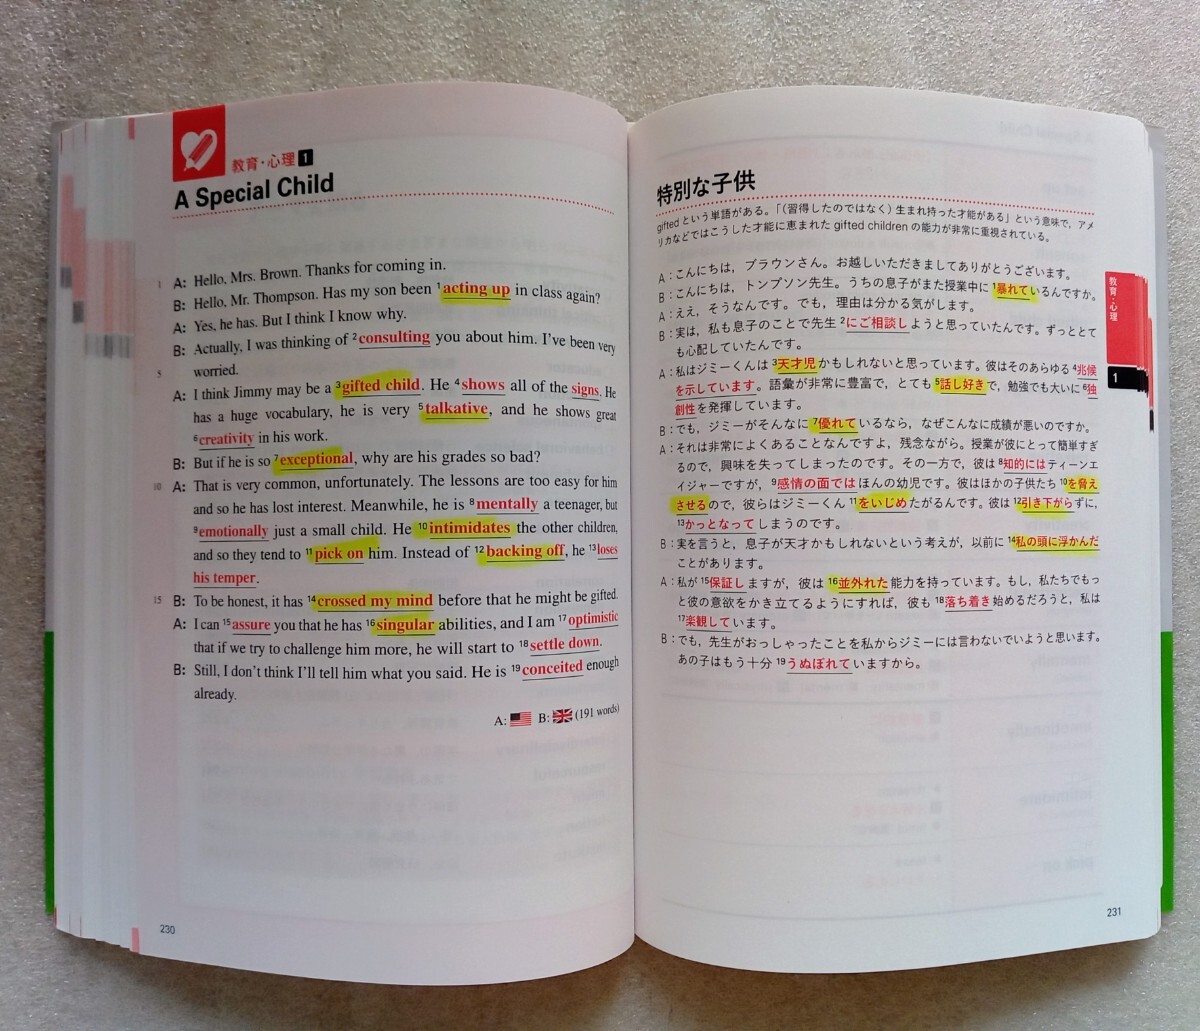 教育・心理 1
A Special Child
1 A: Hello, Mrs. Brown. Thanks for coming in.
B: Hello, Mr. Thompson. Has my son been 1acting up in class again?
A: Yes, he has. But I think I know why.
B: Actually, I was thinking of 2consulting you about him. I've been very
5 worried.
A: I think Jimmy may be a 3gifted child. He 4shows all of the signs. He
has a huge vocabulary, he is very 5talkative, and he shows great
6creativity in his work.
B: But if he is so 7exceptional, why are his grades so bad?
10 A: That is very common, unfortunately. The lessons are too easy for him
and so he has lost interest. Meanwhile, he is 8mentally a teenager, but
9emotionally just a small child. He 10intimidates the other children,
and so they tend to 11pick on him. Instead of 12backing off, he 13loses
his temper.
15 B: To be honest, it has 14crossed my mind before that he might be gifted.
A: I can 15assure you that he has 16singular abilities, and I am 17optimistic
that if we try to challenge him more, he will start to 18settle down.
B: Still, I don't think I'll tell him what you said. He is 19conceited enough
already.
A: B: (191 words)
230
特別な子供
giftedという単語がある。「（習得したのではなく）生まれ持った才能がある」という意味で，アメ
リカなどではこうした才能に恵まれた gifted children の能力が非常に重視されている。
A：こんにちは，ブラウンさん。お越しいただきましてありがとうございます。
B：こんにちは，トンプソン先生。うちの息子がまた授業中に1暴れているんですか。
A：ええ，そうなんです。でも，理由は分かる気がします。
B：実は，私も息子のことで先生2にご相談しようと思っていたんです。ずっととて
も心配していたんです。
A：私はジミーくんは3天才児かもしれないと思っています。彼はそのあらゆる4兆候
を示しています。語彙が非常に豊富で，とても5話し好きで，勉強でも大いに6独
創性を発揮しています。
B：でも，ジミーがそんなに7優れているなら，なぜこんなに成績が悪いのですか。
A：それは非常によくあることなんですよ，残念ながら。授業が彼にとって簡単すぎ
るので，興味を失ってしまったのです。その一方で，彼は8知的にはティーンエ
イジャーですが，9感情の面ではほんの幼児です。彼はほかの子供たち10を脅え
させるので，彼らはジミーくん11をいじめたがるんです。彼は12引き下がらずに，
13かっとなってしまうのです。
B：実を言うと，息子が天才かもしれないという考えが，以前に14私の頭に浮かんだ
ことがあります。
A：私が15保証しますが，彼は16並外れた能力を持っています。もし，私たちでもっ
と彼の意欲をかき立てるようにすれば，彼も18落ち着き始めるだろうと，私は
17楽観しています。
B：でも，先生がおっしゃったことを私からジミーには言わないでいようと思います。
あの子はもう十分19うぬぼれていますから。
教育・心理
1
231